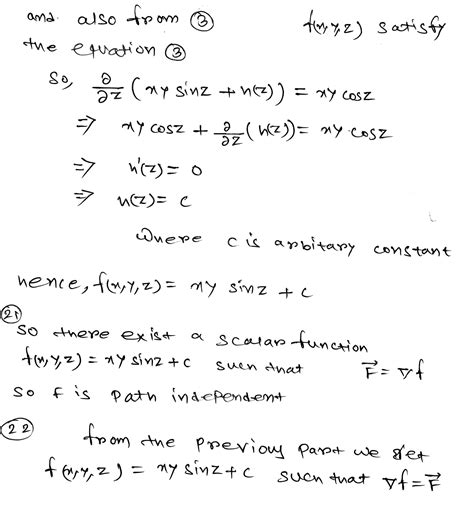 and also from ③ f(x,y,z) satisfy
the equation ③
So, ∂/∂z (xy sinz + h(z)) = xy cosz
⇒ xy cosz + ∂/∂z (h(z)) = xy cosz
⇒ h'(z) = 0
⇒ h(z) = c
Where c is arbitary constant
hence, f(x,y,z) = xy sinz + c
(21)
So there exist a scalar function
f(x,y,z) = xy sinz + c such that F⃗ = ∇f
So F is path independent
(22) from the previous part we get
f(x,y,z) = xy sinz + c such that ∇f = F⃗